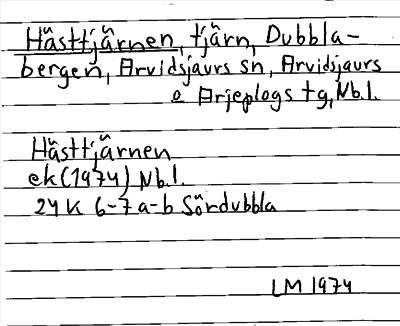 Hästtjärnen, tjärn, Dubbla-
bergen, Arvidsjaurs sn, Arvidsjaurs
o Arjeplogs tg, Nb.l.
Hästtjärnen
ek (1974) Nb.l.
24K 6-7a-b Sördubbla
LM 1974